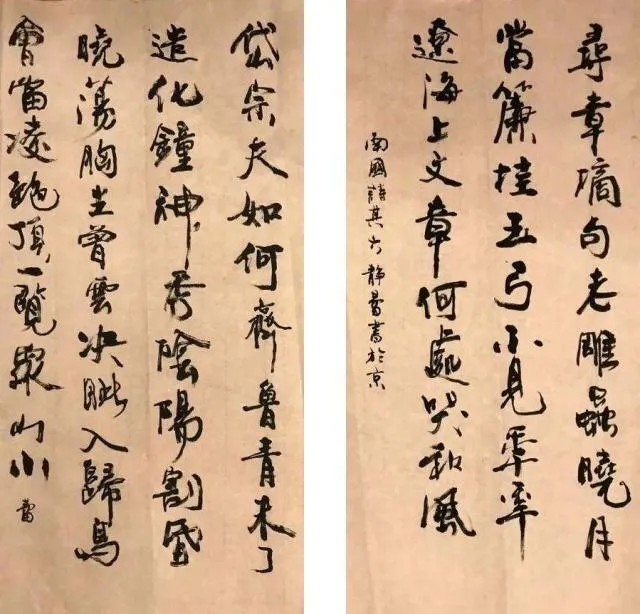 岱宗夫如何齊魯青未了
造化鐘神秀陰陽割昏
曉蕩胸生曾雲決眦入歸鳥
會當凌絶頂一覽眾山小
尋章摘句老雕蟲曉月
當簾挂玉弓不見年年
遼海上文章何處哭秋風
南國詩其六靜書於京